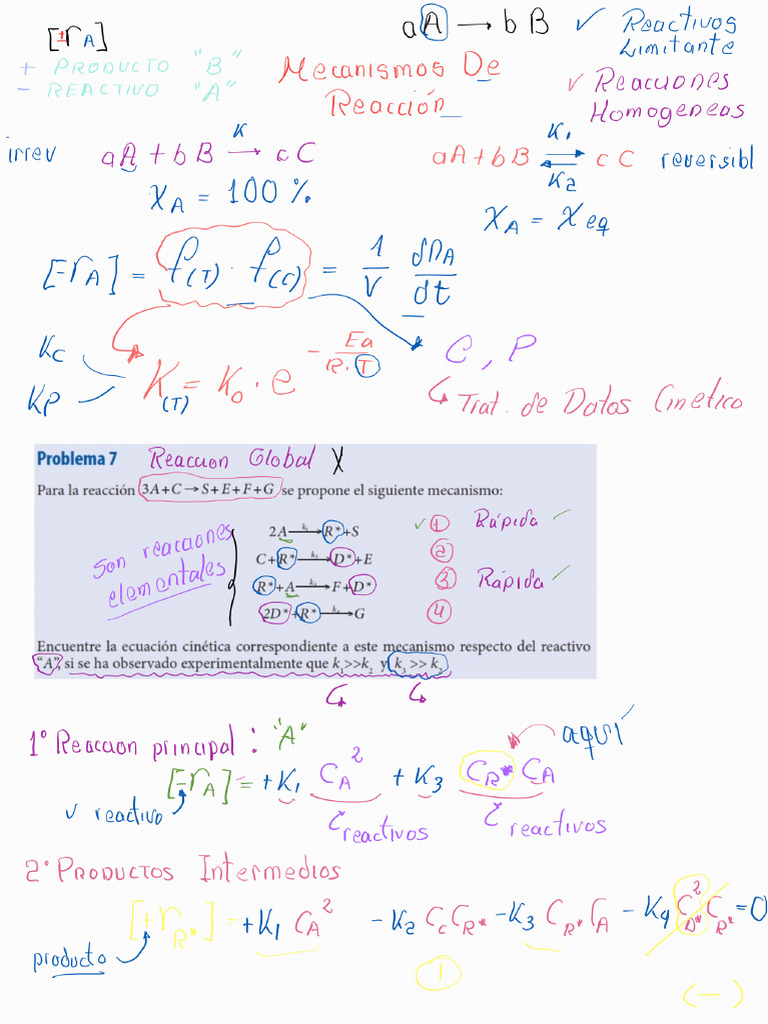 [±r_A]
aA → bB ✓ Reactivos Limitante
+ PRODUCTO "B"
- REACTIVO "A"
Mecanismos De Reacción
✓ Reacciones Homogeneas
irrev aA + bB →K cC
aA + bB ⇌ cC reversibl
K₁
K₂
X_A = 100 %
X_A = X_eq
[-r_A] = f(T) · f(C) = 1/V dn_A/dt
Kc
Kp
K(T) = K₀ · e^(-Ea/R·T)
C, P
Trat. de Datos Cinetico
Problema 7 Reaccion Global X
Para la reacción 3A+C→S+E+F+G se propone el siguiente mecanismo:
2A —k₁→ R*+S ✓ ① Rápida ✓
C+R* —k₂→ D*+E ②
R*+A —k₃→ F+D* ③ Rápida ✓
2D*+R* —k₄→ G ④
Son reacciones elementales
Encuentre la ecuación cinética correspondiente a este mecanismo respecto del reactivo
"A", si se ha observado experimentalmente que k₁>>k₂ y k₃ >> k₂
1° Reaccion principal : "A"
aquí
[-r_A] = +K₁ C_A² + K₃ C_R* C_A
✓ reactivo
C reactivos
C reactivos
2° PRODUCTOS Intermedios
[+r_R*] = +K₁ C_A² - K₂ C_c C_R* - K₃ C_R* C_A - K₄ C_D*² C_R* = 0
producto
①
(-)